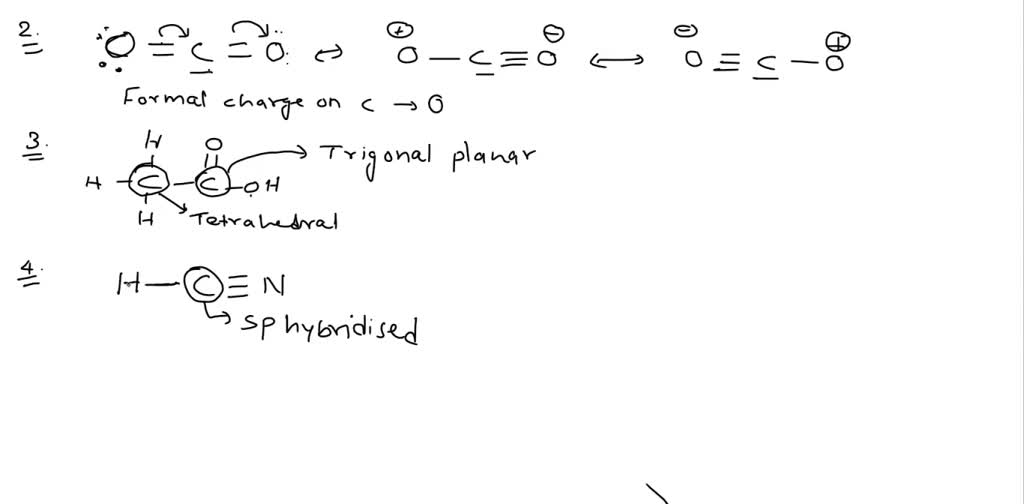 2.
⊕ ⊖ ⊖ ⊕
O = C = O: ⇔ O — C ≡ O ⟷ O ≡ C — O
Formal charge on C → O
3.
H O
H — C — C — OH → Trigonal planar
H → Tetrahedral
4.
H — C ≡ N
↳ sp hybridised